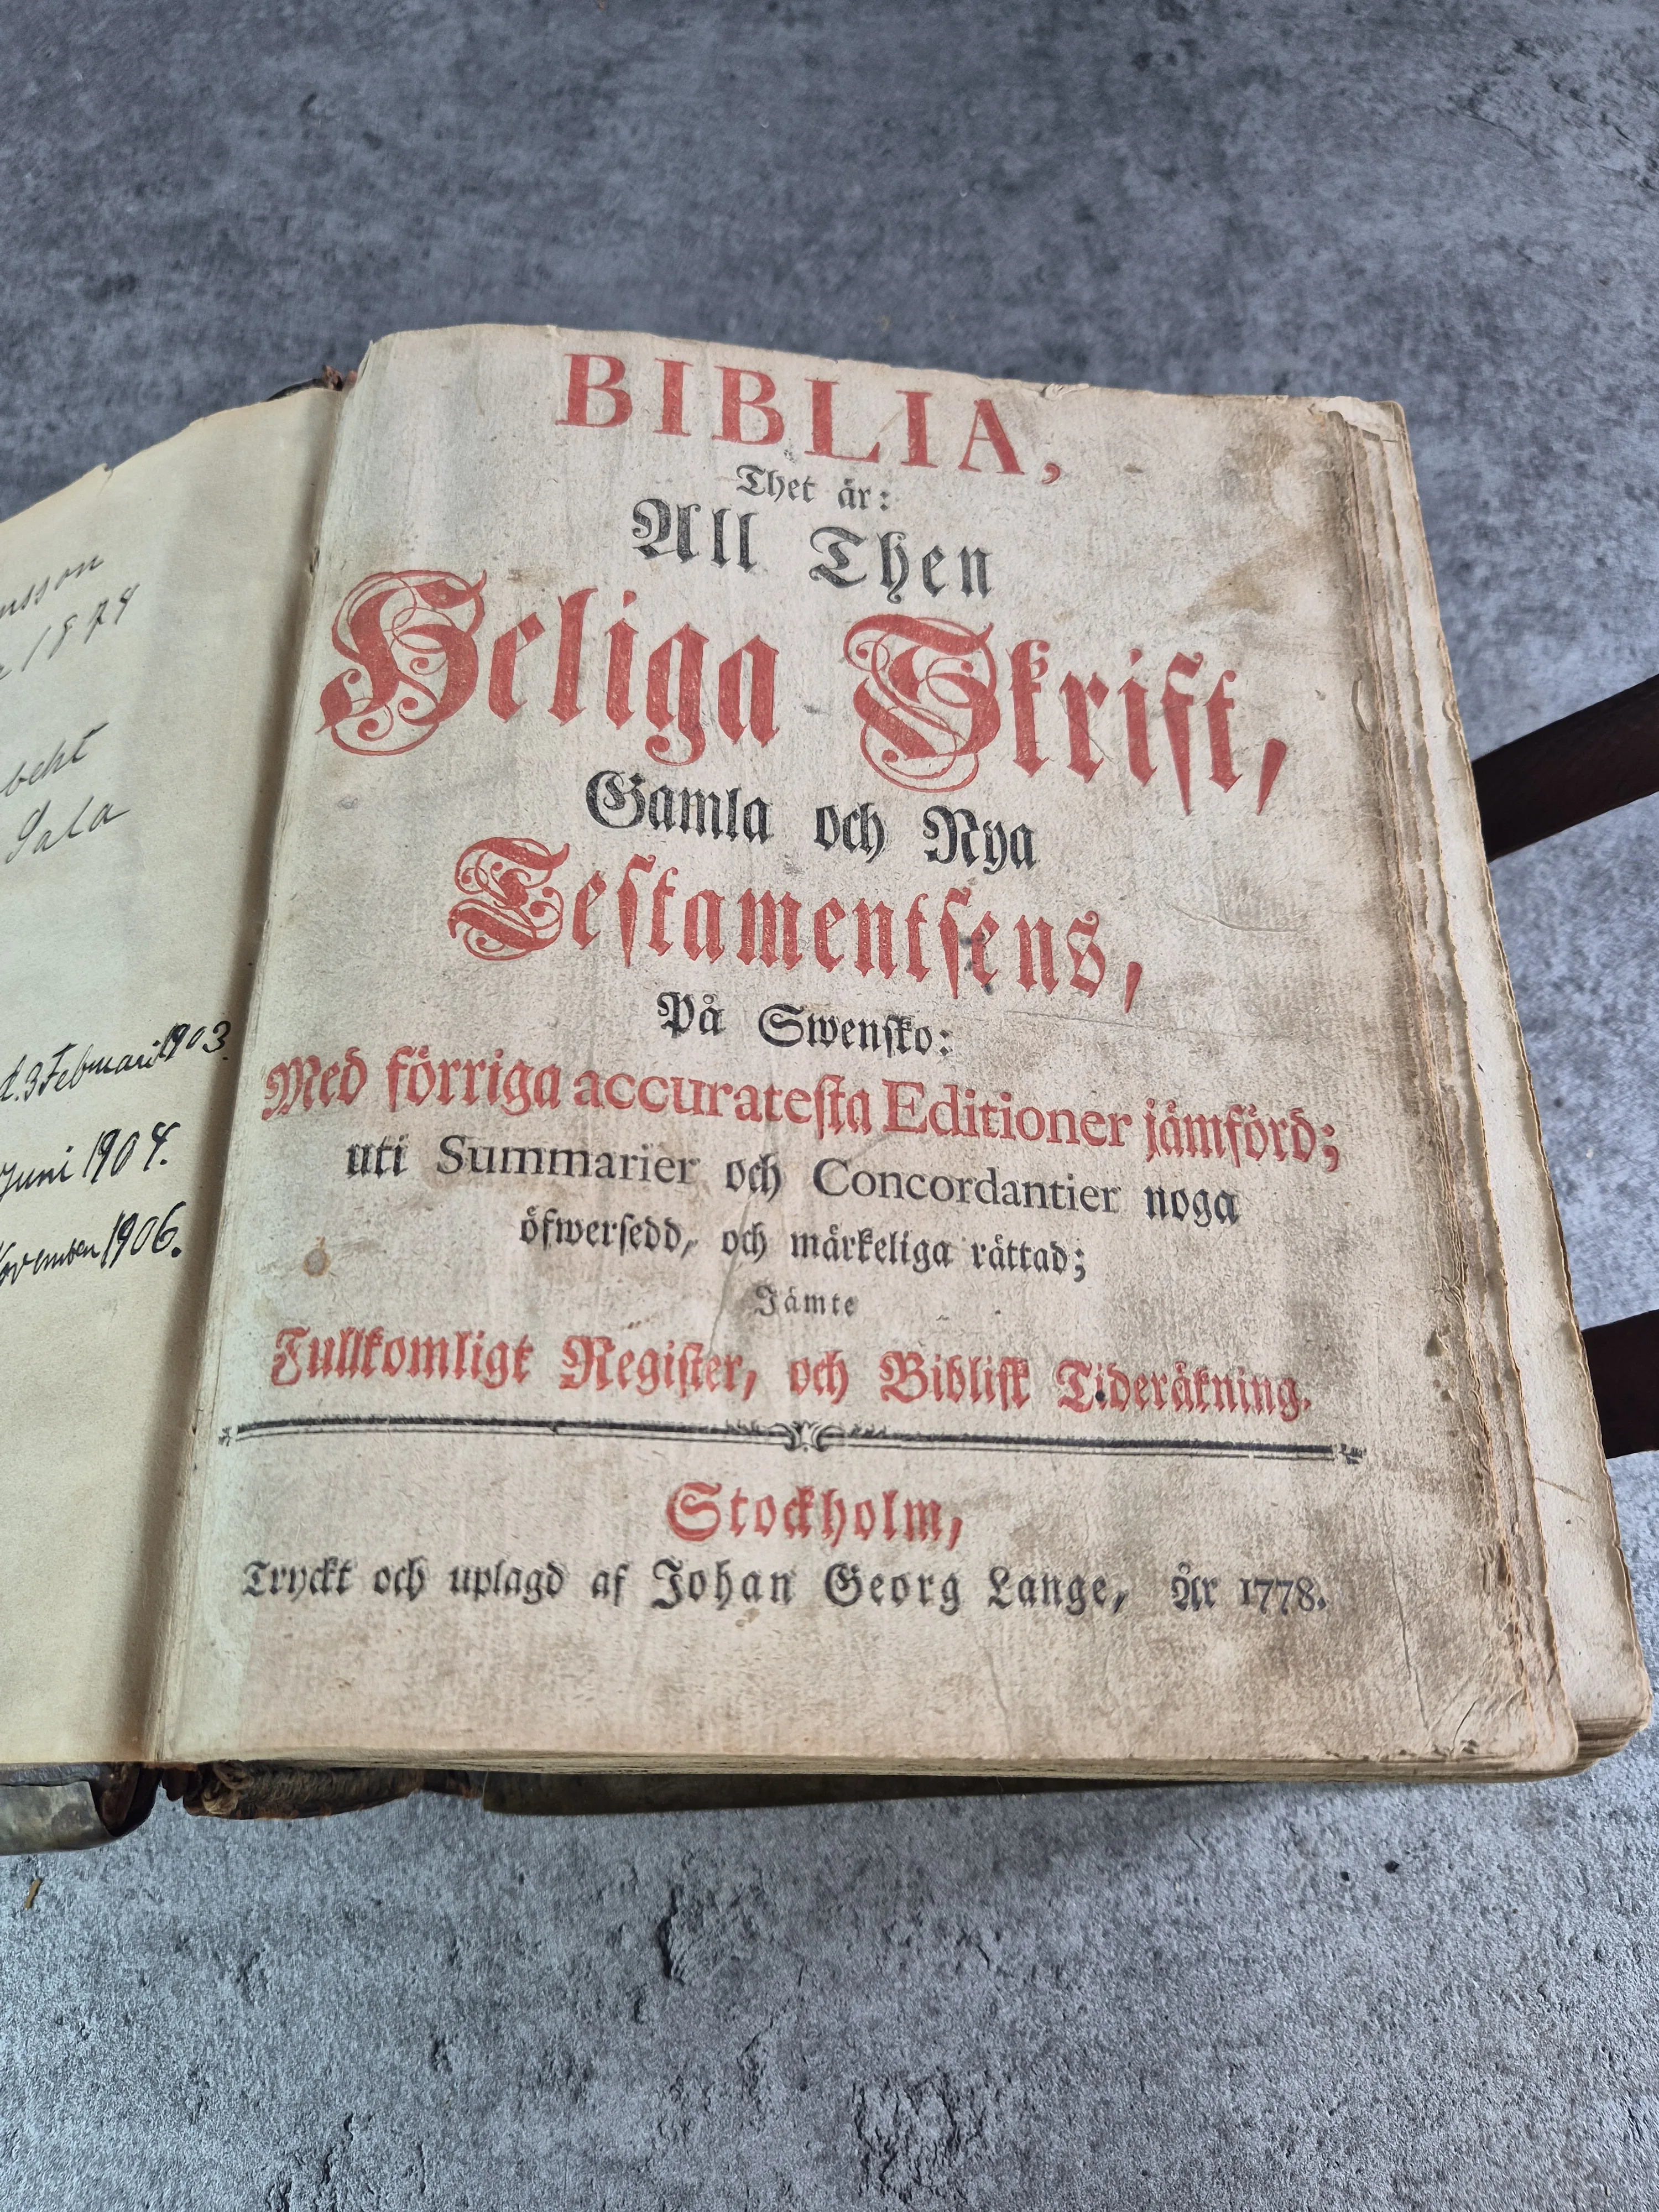 1874
Sala
d. 3 Februari 1903.
Juni 1904.
November 1906.
BIBLIA,
Thet är:
All Then
Heliga Skrift,
Gamla och Nya
Testamentsens,
På Swensko:
Med förriga accuratesta Editioner jämförd;
uti Summarier och Concordantier noga
öfwersedd, och märkeliga rättad;
Jämte
Fullkomligt Register, och Biblisk Tideräkning.
Stockholm,
Tryckt och uplagd af Johan Georg Lange, År 1778.